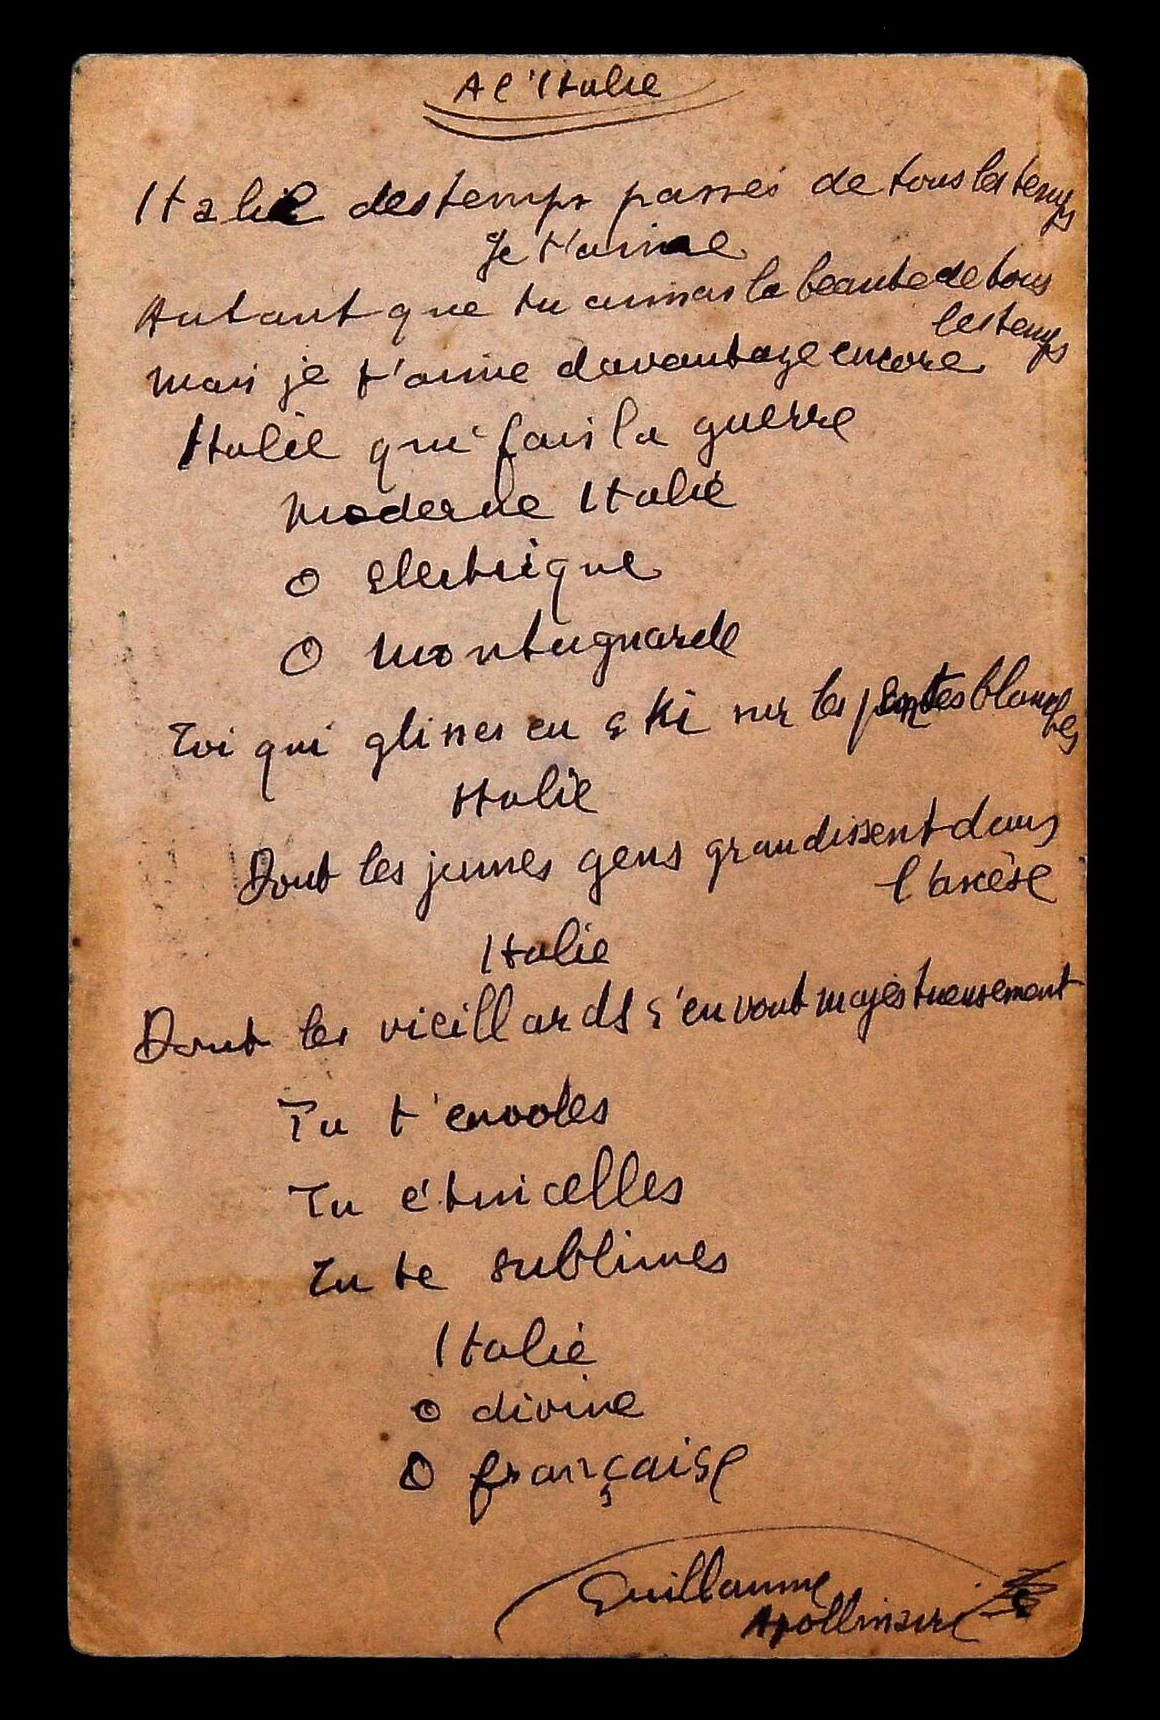 A l'Italie
Italie des temps passés de tous les temps
Je t'aime
Autant que tu aimas la beauté de tous
les temps
Mais je t'aime davantage encore
Italie qui fais la guerre
Moderne Italie
O Electrique
O Montagnarde
Toi qui glisses en ski sur les pentes blanches
Italie
Dont les jeunes gens grandissent dans
l'ascèse
Italie
Dont les vieillards s'en vont majestueusement
Tu t'envoles
Tu étincelles
Tu te sublimes
Italie
O divine
O française
Guillaume
Apollinaire